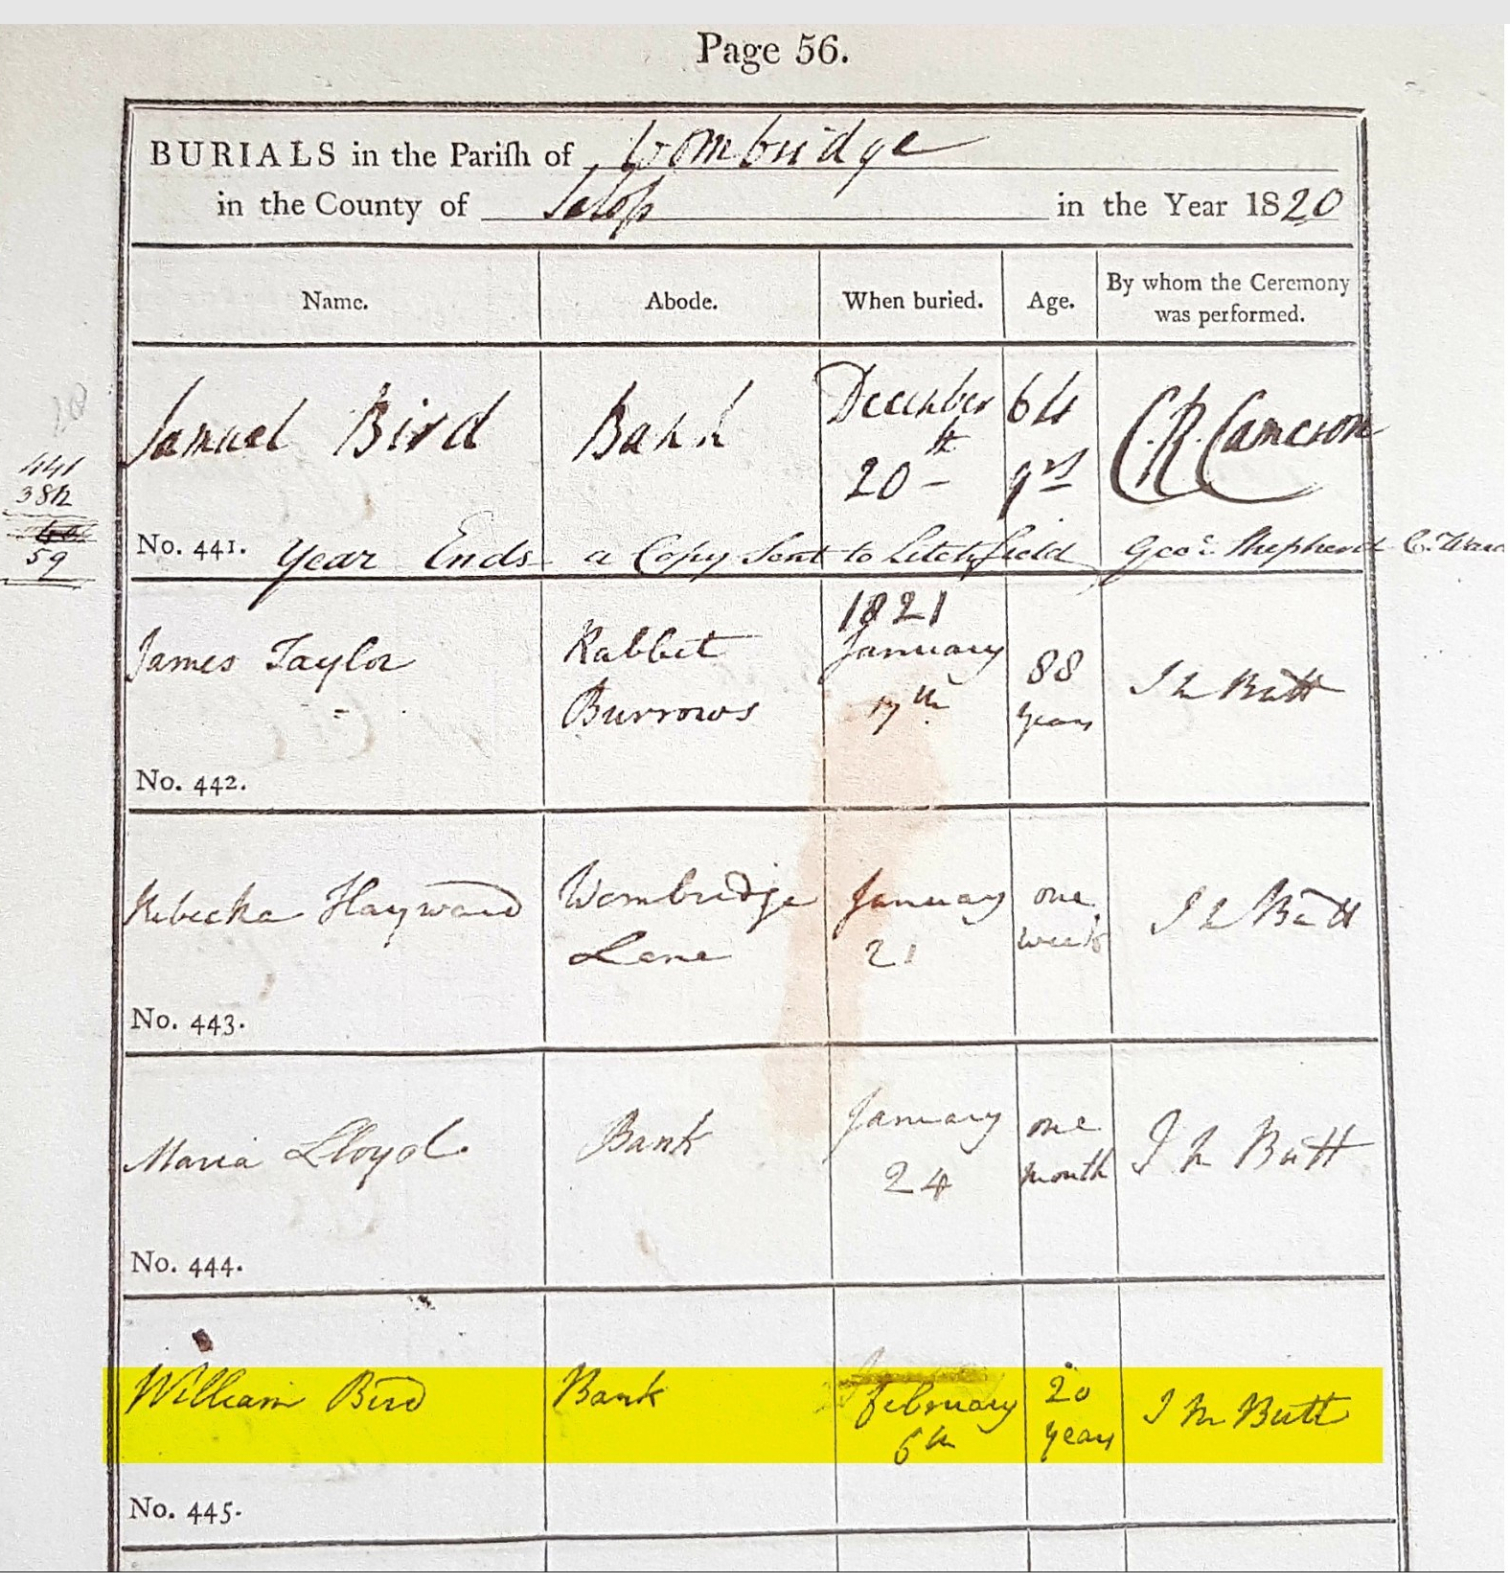 Page 56.
BURIALS in the Pariſh of Wombridge
in the County of Salop in the Year 1820
Name. Abode. When buried. Age. By whom the Ceremony was performed.
Samuel Bird Bank December 64 C.R. Cameron
20th yrs
441
382
59
No. 441. Year Ends a Copy Sent to Litchfield Geoe. Shepherd C. Ward
1821
James Taylor Rabbit January 88 J M Butt
Burrows 17th years
No. 442.
Rebecka Hayward Wombridge January one J M Butt
Lane 21 week
No. 443.
Maria Lloyd Bank January one J M Butt
24 month
No. 444.
William Bird Bank February 20 J M Butt
6th years
No. 445.